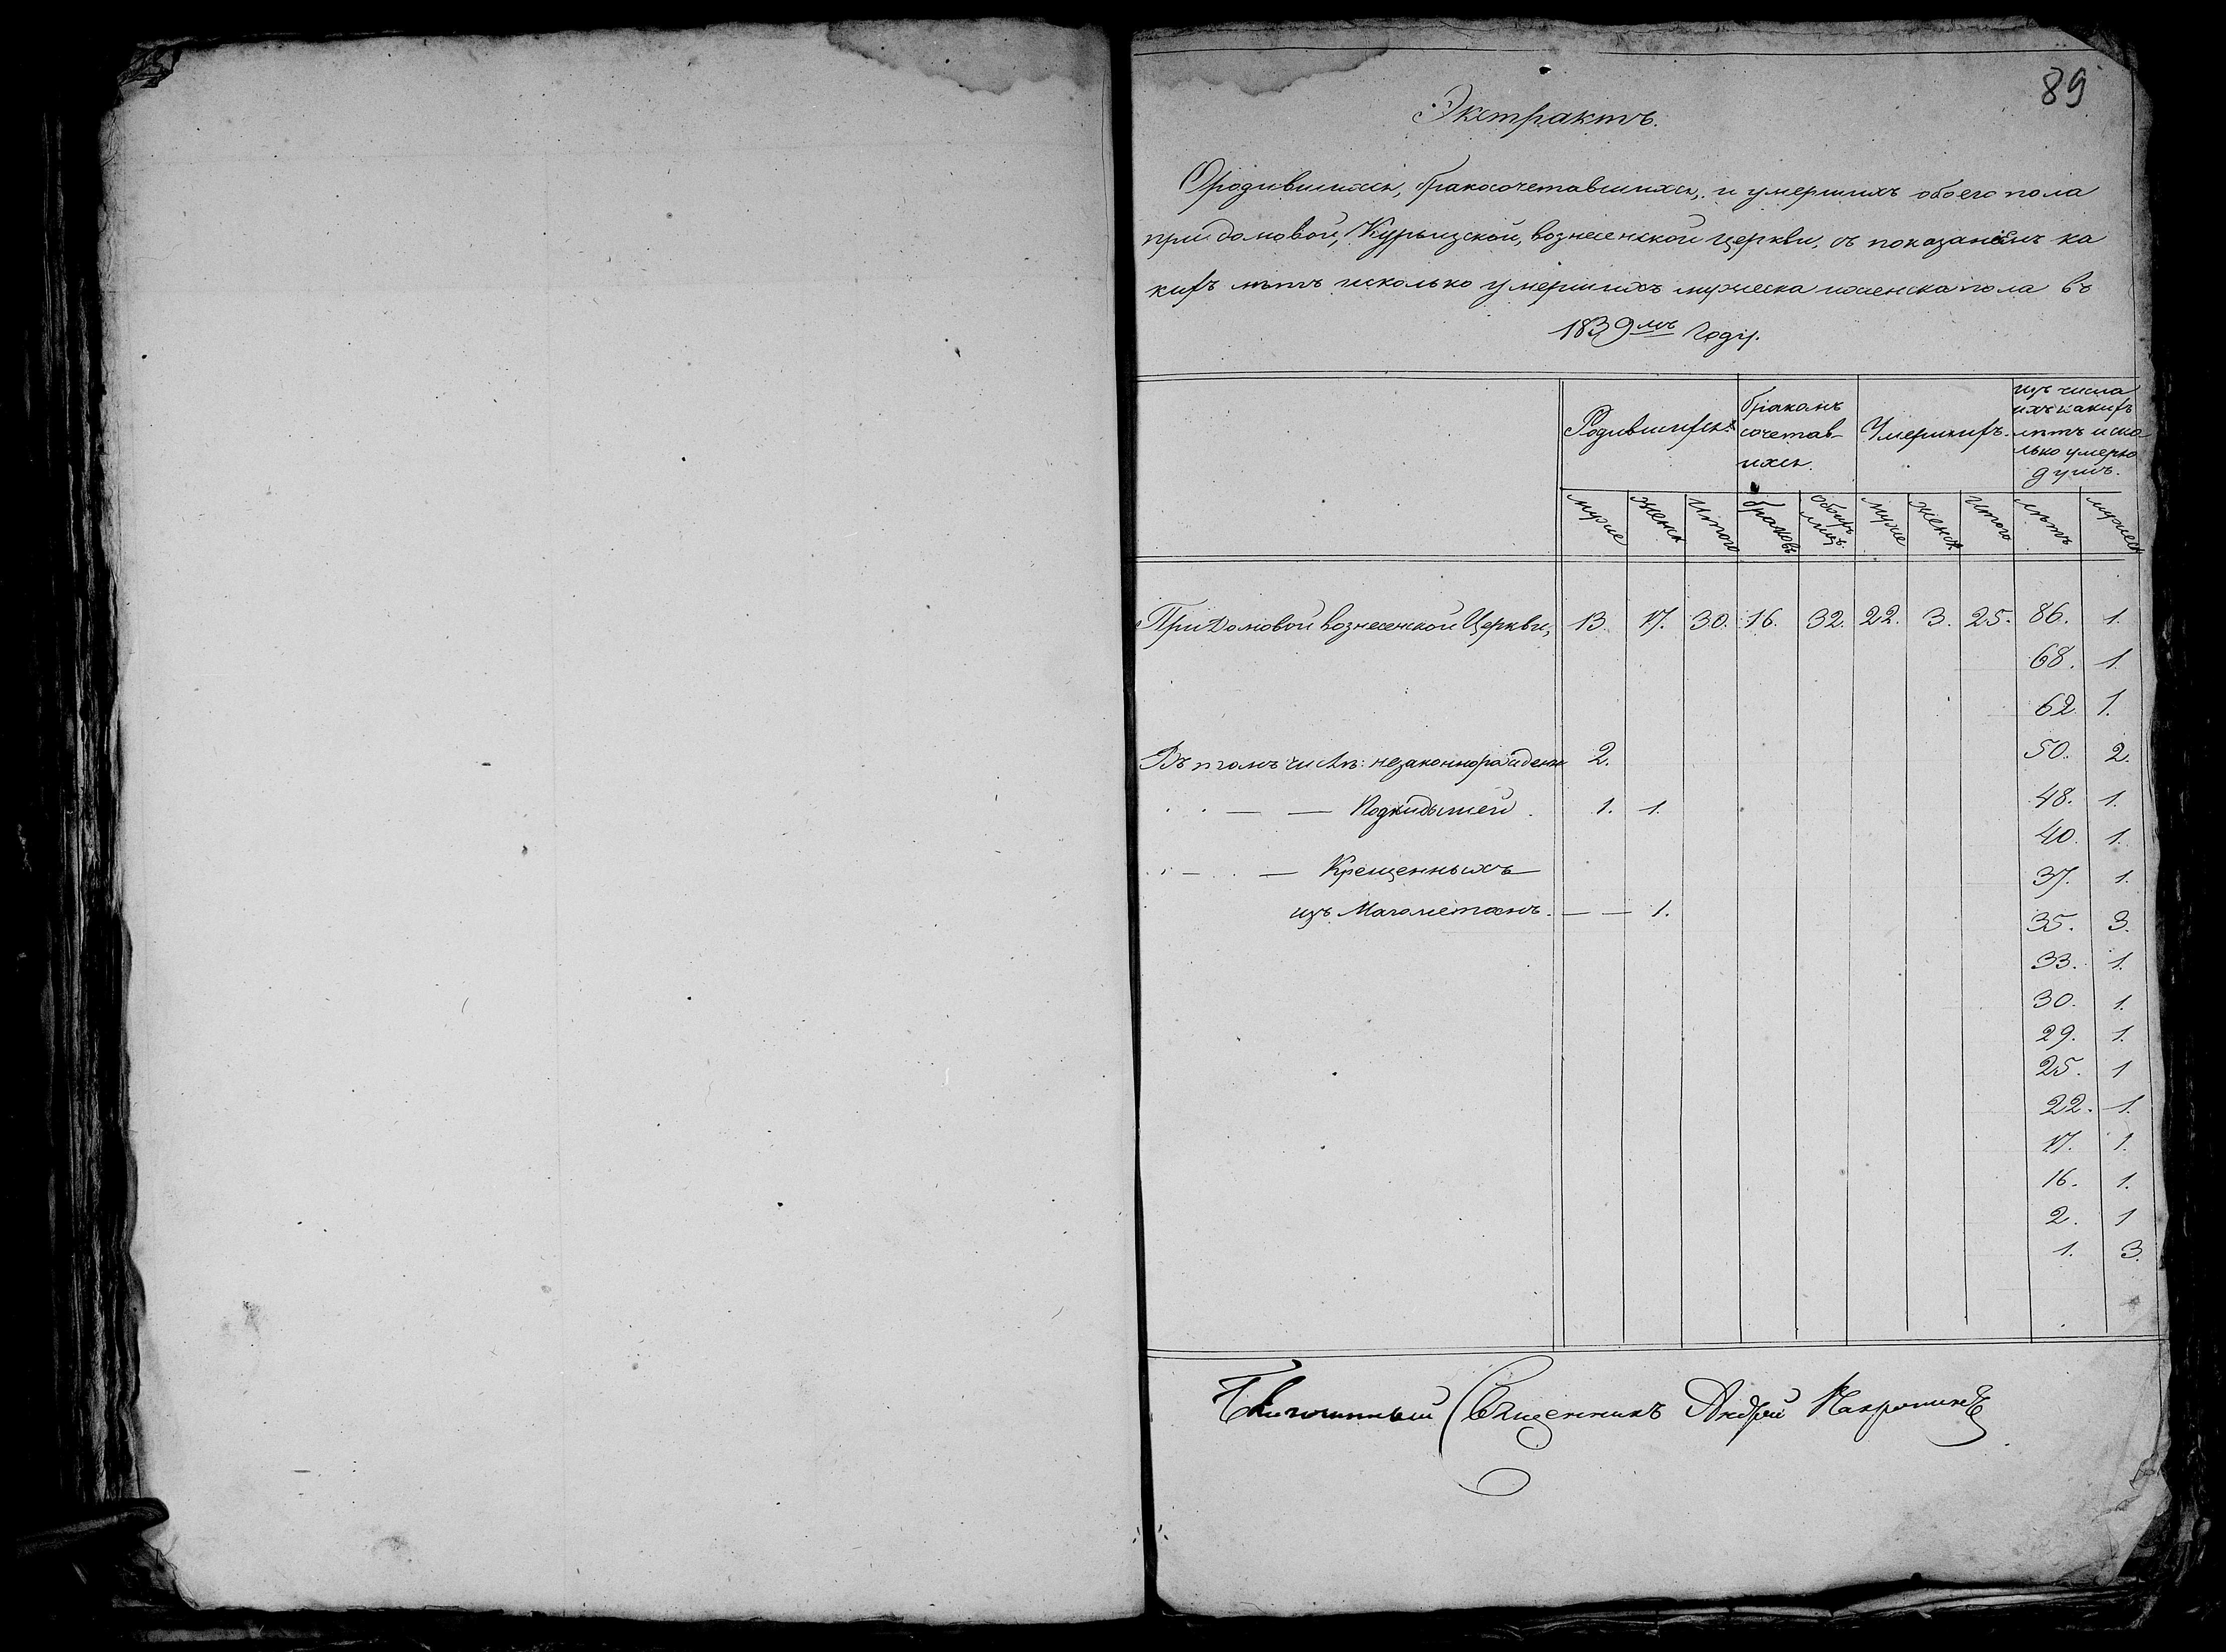 89
Экстрактъ.
О родившихся, бракосочетавшихся, и умершихъ обоего пола
при домовой, Курьизской, вознесенской церкви, съ показаніемъ ка
кихъ лѣтъ исколько умершихъ мужеска иженска пола въ
1839мъ Году.
Родившихся. бракомъ сочетав-ихся. Умершихъ. изъ числа ихъ какихъ лѣтъ и ско лько умерло душъ.
муже женск Итого браковъ обоихъ лицъ. муже женск. Итого лѣтъ мужеск
При Домовой вознесенской Церкви, 13. 17. 30. 16. 32. 22. 3. 25. 86. 1.
68. 1.
62. 1.
50. 2.
Въ томъ числѣ: незаконнорожден 2.
48. 1.
— — Подкидышей. 1. 1.
40. 1.
— — Крещенныхъ
37. 1.
изъ Магометанъ. — — 1.
35. 3.
33. 1.
30. 1.
29. 1.
25. 1
22. 1.
17. 1.
16. 1.
2. 1
1. 3.
Священникъ Андрей